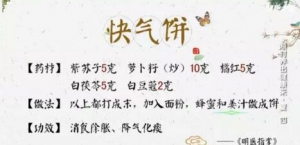 快气饼
【药材】 紫苏子5克 萝卜籽（炒）10克 橘红5克
白茯苓5克 白豆蔻2克
【做法】 以上都打成末，加入面粉，蜂蜜和姜汁做成饼
【功效】 消食除胀、降气化痰
——《明医指掌》